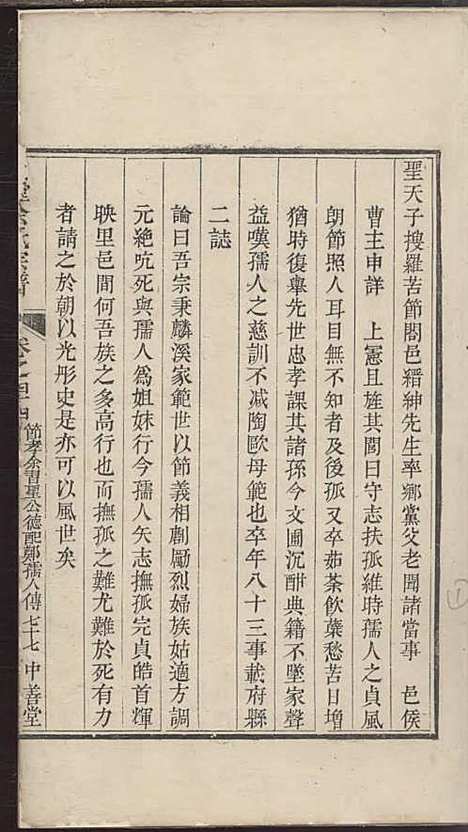 聖天子搜羅苦節閤邑縉紳先生率鄉黨父老聞諸當事　邑侯
曹主申詳　上憲且旌其閭曰守志扶孤維時孺人之貞風
朗節照人耳目無不知者及後孤又卒茹荼飲蘗愁苦日增
猶時復舉先世忠孝課其諸孫今文圃沉酣典籍不墜家聲
益嘆孺人之慈訓不减陶歐母範也卒年八十三事載府縣
二誌
論曰吾宗秉麟溪家範世以節義相劘勵烈婦族姑適方調
元絶吭死與孺人爲姐妹行今孺人矢志撫孤完貞皓首輝
映里邑間何吾族之多高行也而撫孤之難尤難於死有力
者請之於朝以光彤史是亦可以風世矣
節孝余胃聖公德配鄭孺人傳　七十七　中善堂